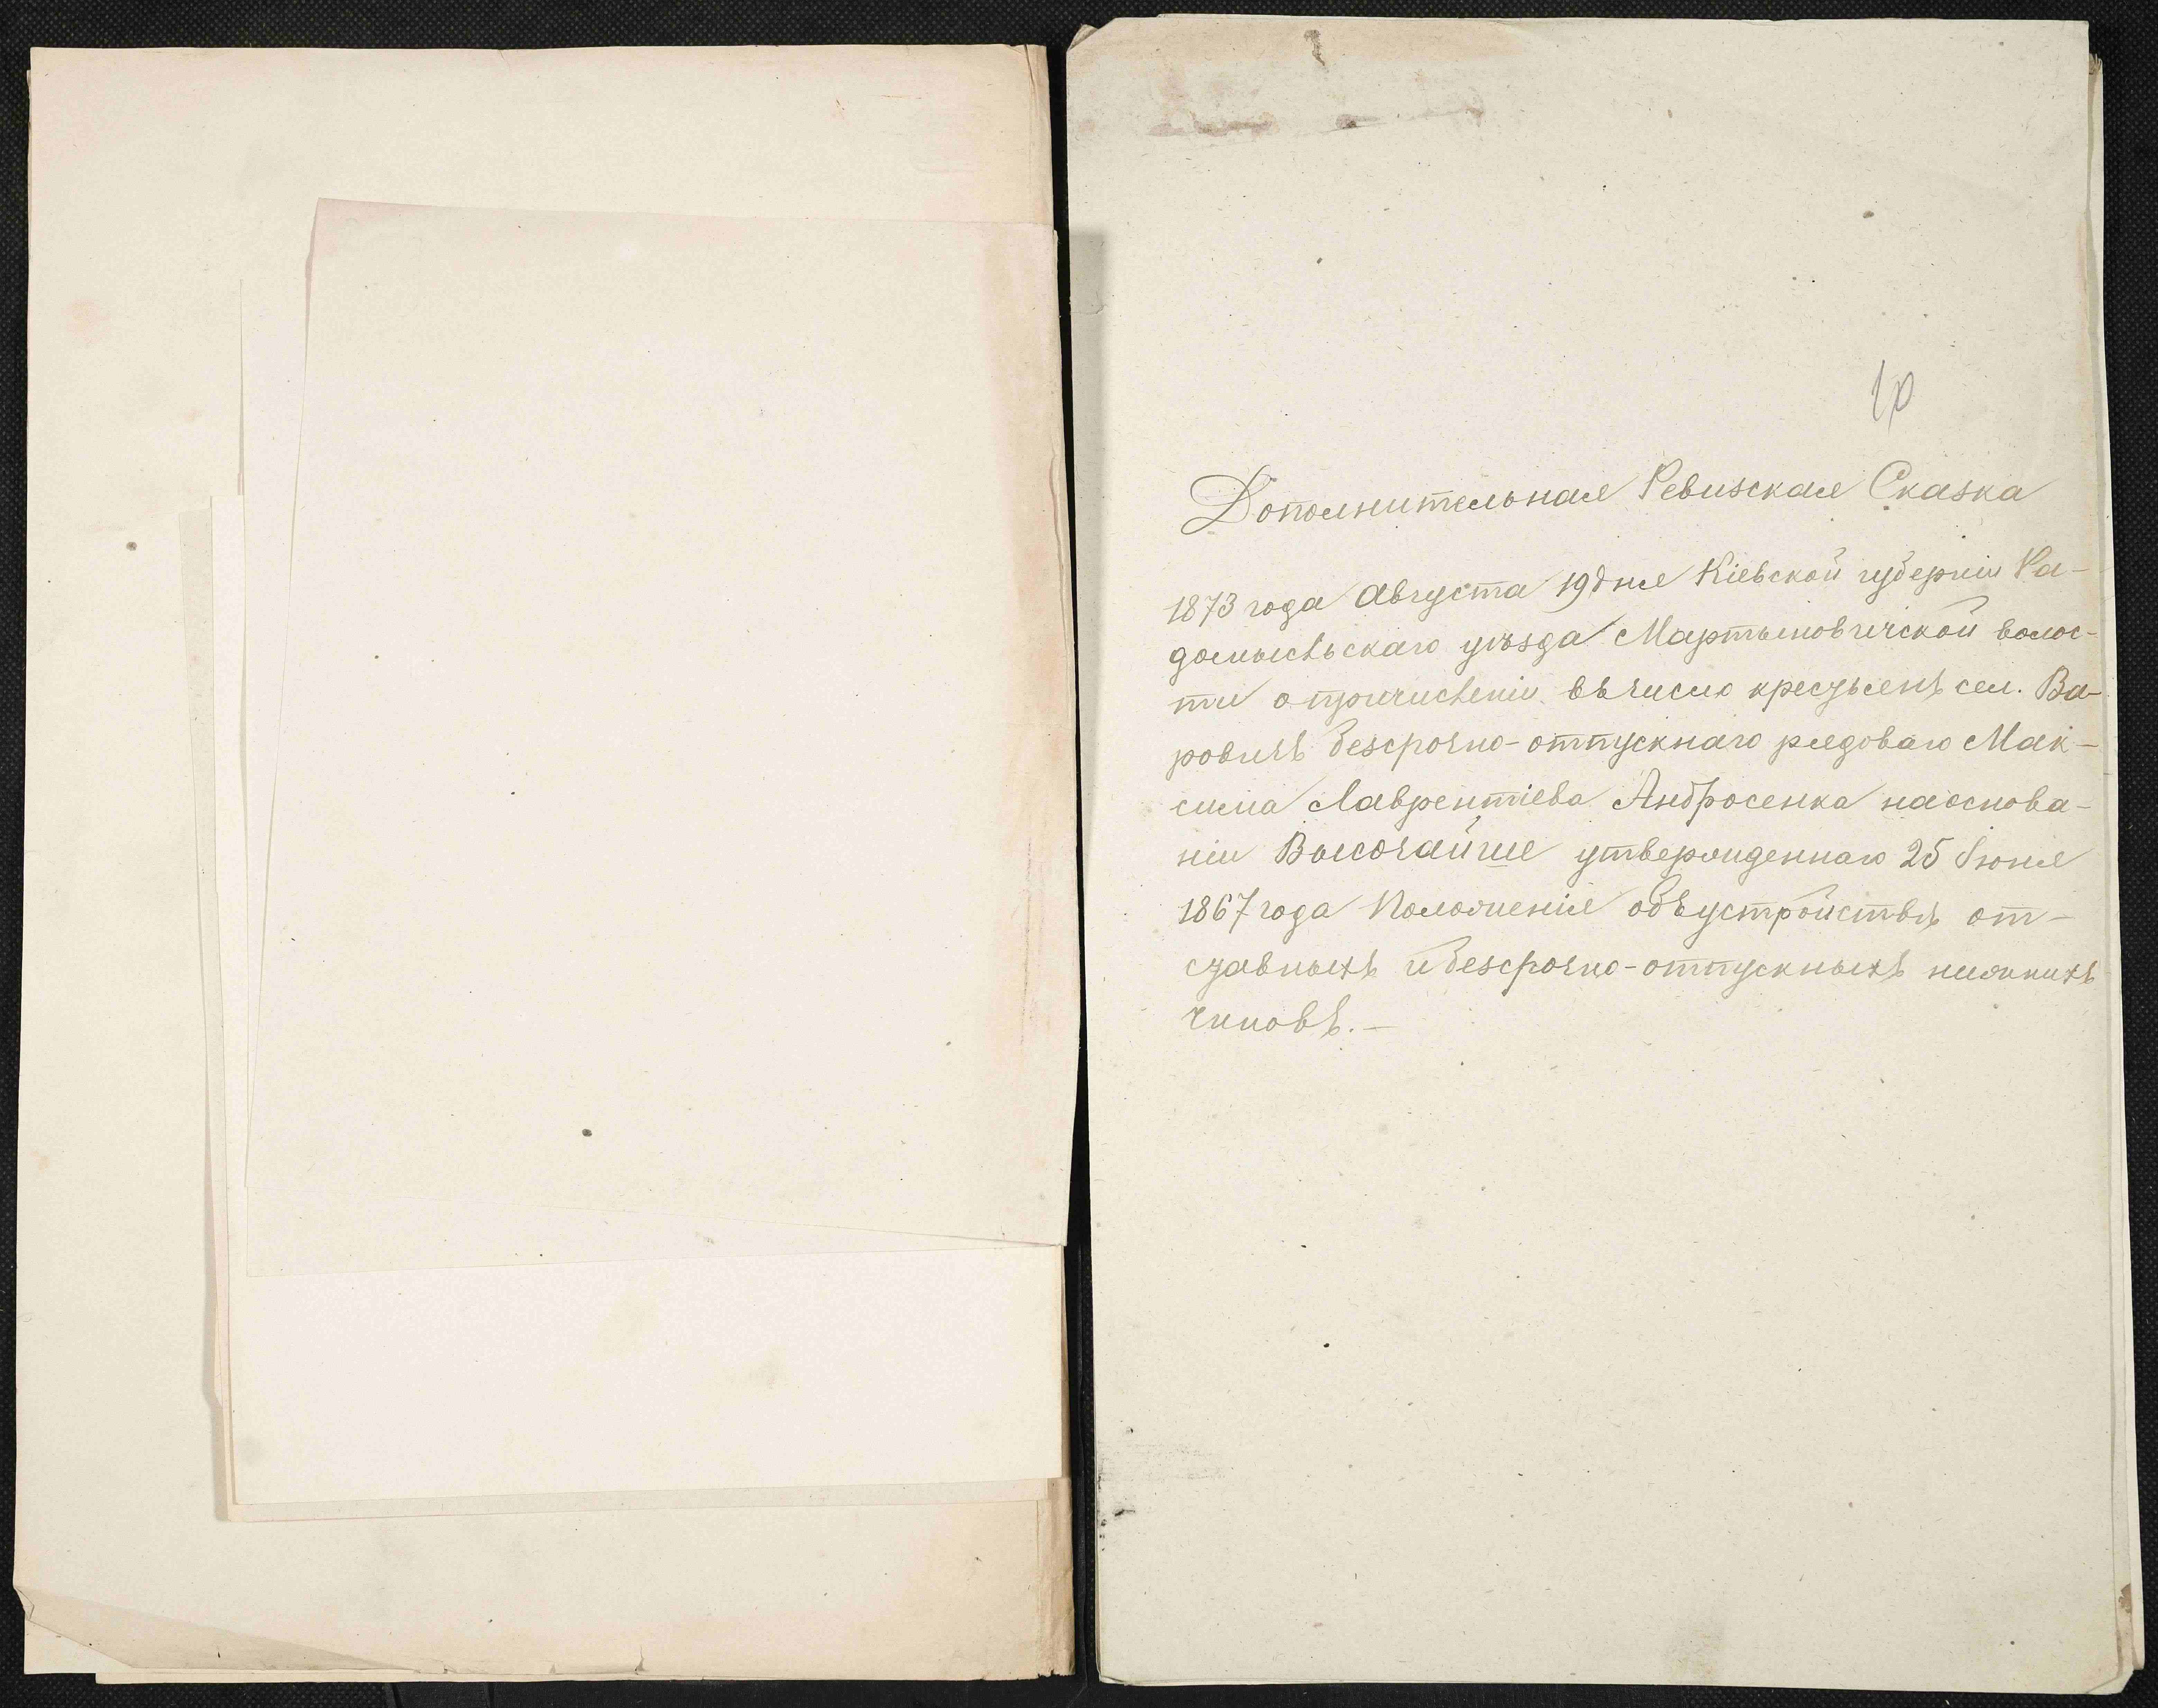 10
Дополнительная Ревизская Сказка
1873 года Августа 19 дня Кіевской губерніи Ра-
домысльскаго уѣзда Мартыновичской волос-
ти о причисленіи въ число крестьянъ сел. Ва-
ровичъ безсрочно-отпускнаго рядоваго Мак-
сима Лаврентіева Андросенка на основа-
ніи Высочайше утвержденнаго 25 Іюня
1867 года Положенія объ устройствѣ от-
ставныхъ и безсрочно-отпускныхъ нижнихъ
чиновъ.-